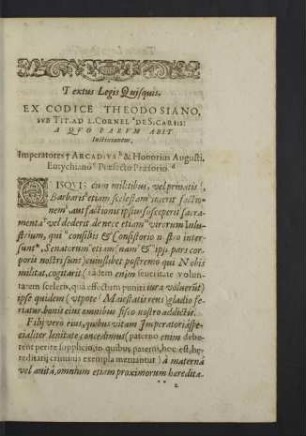 Textus Legis Quisquis.
EX CODICE THEODOSIANO,
SVB TIT. AD L. CORNEL. DE SICARIIS:
A QVO PARVM ABIT
Iustinianeus.
Imperatores † ARCADIVS & Honorius Augusti,
Eutychiano Præfecto Prætorio.
QVISQVIS cum militibus, vel priuatis,
Barbaris etiam scelestam inierit factio-
nem aut factionis ipsius susceperit sacra-
menta vel dederit, de nece etiam virorum Inlu-
strium, qui consiliis & Consistorio nostro inter-
sunt, Senatorum etiam (nam & ipsi pars cor-
poris nostri sunt) cuiuslibet postremo qui Nobis
militat, cogitarit (eadem enim seueritate volun-
tatem sceleris, qua effectum puniri iura voluerunt)
ipse quidem (vtpote Maiestatis reus) gladio fe-
riatur, bonis eius omnibus fisco nostro addictis.
Filii vero eius, quibus vitam Imperatoria spe-
cialiter lenitate concedimus (paterno enim debe-
rent perire supplicio, in quibus paterni, hoc est, he-
reditarij criminis exempla metuantur) à materna
vel auita, omnium etiam proximorum heredita-